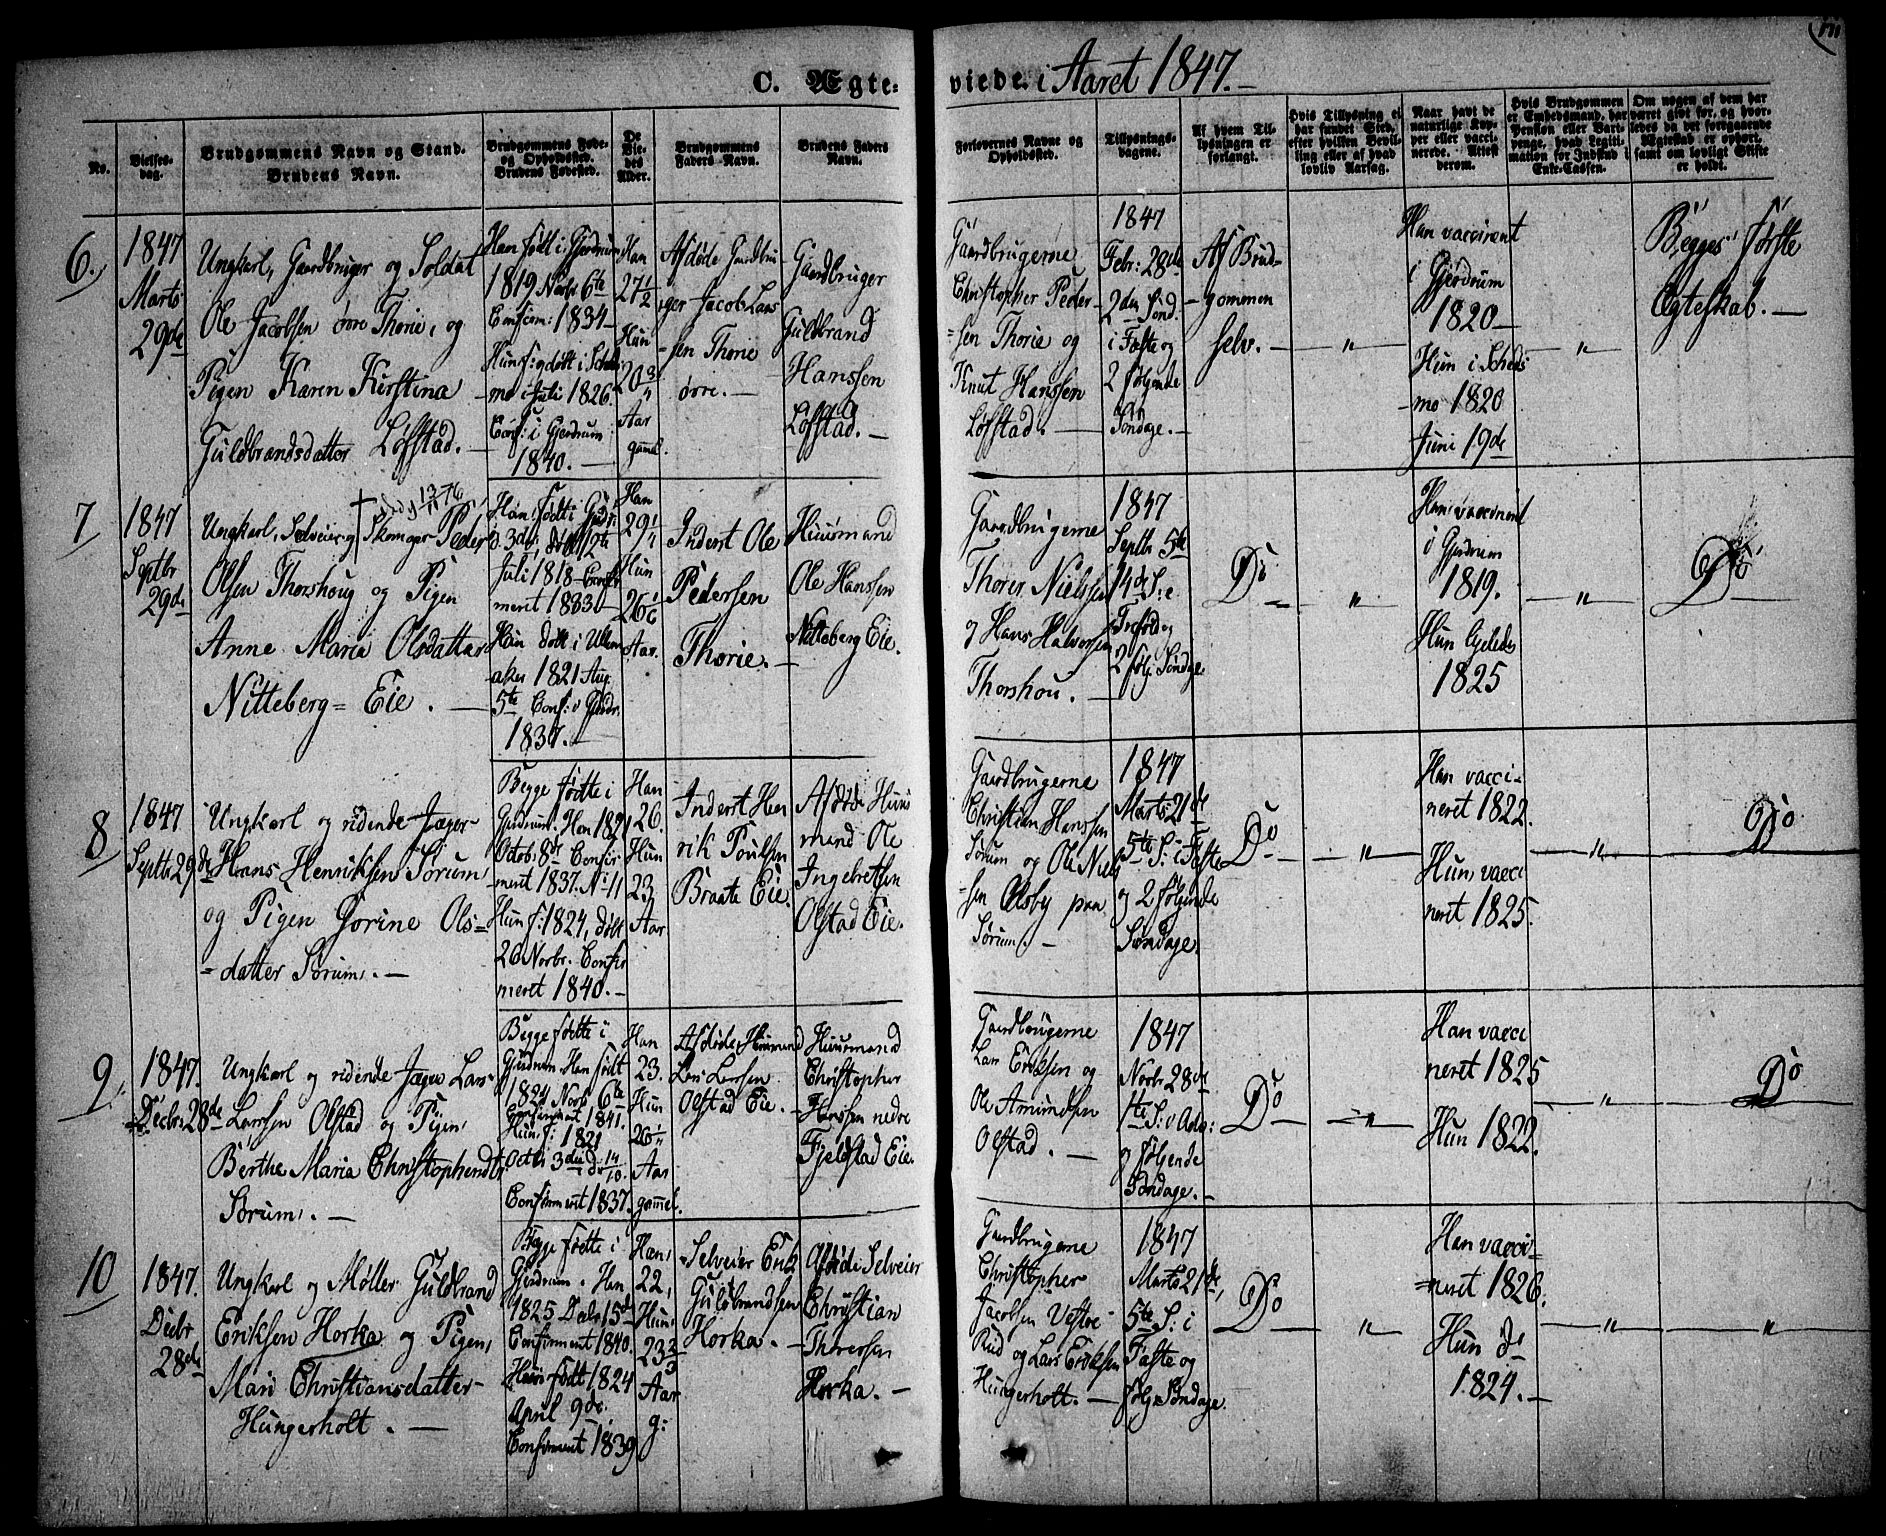 C. Ægte=
viede i Aaret 1847.-
No.
Vielses-
dag.
Brudgommens Navn og Stand.
Brudens Navn.
Brudgommens Føde-
og Opholdssted.
Brudens Fødested.
De
Vie-
des
Alder.
Brudgommens
Faders-Navn.
Brudens Faders
Navn.
Forlovernes Navne og
Opholdssted.
Tillysnings-
dagene.
Af hvem Til-
lysningen er
forlangt.
Hvis Tillysning ei
har fundet Sted,
efter hvilken Bevil-
ling eller af hvad
lovlig Aarsag.
Naar havt de
naturlige Kop-
per eller vacci-
nerede. Attest
derom.
Hvis Brudgommen
er Embedsmand, har
Pension eller Vart-
penge, hvad Legiti-
mation for Indskud i
Enke-Cassen.
Om nogen af dem har
været gift før, og hvor-
ledes da det foregaaende
Ægteskab er ophørt,
samt om lovligt Skifte
er holdt.
6.
1847
Marts
29de
Ungkarl, Gaardbruger og Soldat
Ole Jacobsen øvre Thorie, og
Pigen Karen Kirstina
Guldbrandsdatter Løfstad. -
Han født i Gjerdrum
1819 Novbr 6te
Confirm: 1834 -
Hun f: og døbt i Skeds-
mo i Juli 1826.
Conf: i Gjerdrum
1840. -
Han
27 1/2
Hun
20 3/4
Aar
gaml.
Afdøde Gaardbru
ger Jacob Lars
sen Thorie
øvre. -
Gaardbruger
Guldbrand
Hanssen
Løfstad. -
Gaardbrugerne
Christopher Peder-
=sen Thorie og
Knut Hanssen
Løfstad. -
1847
Febr: 28de
2den Sønd.
i Faste og
2 følgende
Søndage. -
Af Brud-
gommen
selv. -
"
Han vaccineret
i Gjerdrum
1820 -
Hun i Skeds
mo 1820
Juni 19de
"
Begges første
Ægteskab. -
7
1847
Septbr
29de
Ungkarl, Selveier og Skomager Peder
Olsen Thorshoug og Pigen
Anne Maria Olsdatter
Nitteberg= Eie. -
Han født i Gjdr:
3die, døbt 12te
Juli 1818 - Confir
meret 1833 -
Hun døbt i Ullens
aker 1821 Aug.
5te Conf: i Gjerdr.
1837. -
Han
29
Hun
26
Aar.
Inderst Ole
Pedersen
Thorie. -
Huusmand
Ole Hanssen
Nitteberg Eie.
Gaardbrugerne
Thorer Nielssen
og Hans Halvorsen
Thorshou. -
1847
Septbr 5te
14de S: e.
Trefold og
2 følg: Søndage
Do
"
Han vaccineret
i Gjerdrum
1819.
Hun ligeledes
1825
"
Do
8
1847
Septbr 29de
Ungkarl og ridende Jæger
Hans Henriksen Sørum,
og Pigen Gorine Ols=
=datter Sørum. -
Begge fødte i
Gjerdrum. Han 1821
Octob: 8de Confir
meret 1837. No 11
Hun f: 1824, døbt
20 Novbr. Confir
meret 1840. -
Han
26.
Hun
23
Aar
Inderst Hen
rik Poulsen
Braate Eie.
Afdøde Huus
mand Ole
Ingebretsen
Olstad Eie.
Gaardbrugerne
Christian Hanssen
Sørum og Ole Niels
=sen Olsby paa
Sørum. -
1847
Marts 21de
5te S: i Faste
og 2 følgende
Søndage.
Do
"
Han vacci-
neret 1822.
Hun vacci
neret 1825.
"
Do
9.
1847.
Decbr 28de
Ungkarl og ridende Jæger Lars
Larssen Olstad og Pigen,
Berthe Maria Christophersdtr
Sørum. -
Begge fødte i
Gjerdrum. Han født
1824 Novb 6te
Confirmeret 1841.
Hun f: 1821
Octbr 3die
Confirmeret 1837.
Han
23.
Hun
26
Aar
gammel.
Afdøde Huusmand
Lars Larssen
Olstad Eie.
Huusmand
Christopher
Hanssen nedre
Fjeldstad Eie.
Gaardbrugerne
Lars Eriksen og
Ole Amundsen
Olstad. -
1847
Novbr 28de
1te S: i Adv:
og følgende
Søndage. -
Do
"
Han vacci
neret 1825
Hun 1822.
"
Do
10
1847.
Decbr
28de
Ungkarl og Møller Guldbrand
Eriksen Horka og Pigen,
Mari Christiansdatter
Hungerholt. -
Begge fødte i
Gjerdrum. Han
1825 Decbr 15de
Confirmeret 1840.
Hun født 1824
April 9de.
Confirmeret 1839
Han,
22,
Hun
23
Aar
g:
Selveier Erik
Guldbrandsen
Horka. -
Afdøde Selveier
Christian
Thoressen
Horka. -
Gaardbrugerne
Christopher
Jacobsen Vestre
Rud og Lars Eriksen
Hungerholt. -
1847
Marts 21de,
5te S: i
Faste og
følg: Søndage.
Do
"
Han vacci=
=neret 1826.
Hun do
1824. -
"
"